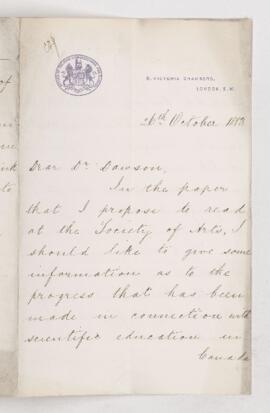 9, VICTORIA CHAMBERS,
LONDON, S.W.
26th October 1883
Dear Dr. Dawson,
In the paper
that I propose to read
at the Society of Arts, I
should like to give some
information as to the
progress that has been
made in connection with
scientific education in
Canada